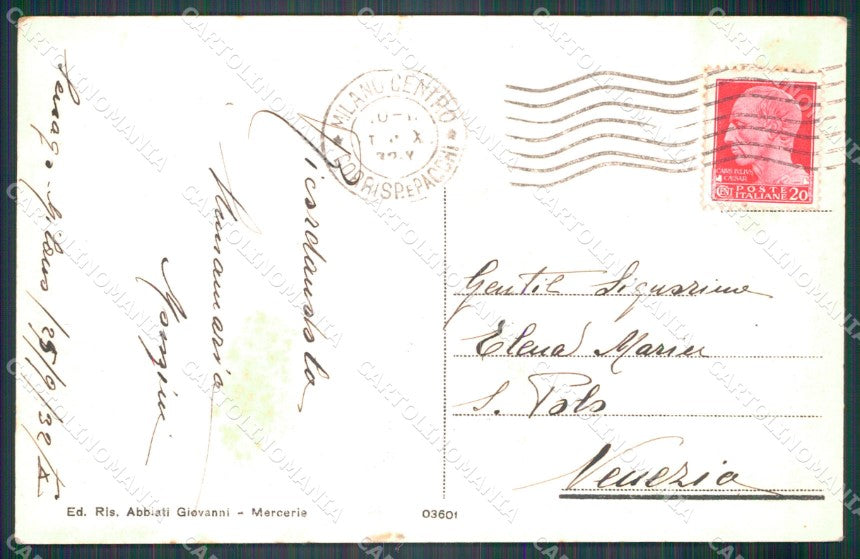 Milano / 25/9/32/X
Ricordandola
Annamaria
MILANO CENTRO
* CORRISP. E PACCHI *
CAIVS IVLIVS
CAESAR
CENT POSTE ITALIANE 20
Gentil Signorina
Elena Maria
S. Polo
Venezia
Ed. Ris. Abbiati Giovanni - Mercerie
03601
CARTOLINOMANIA